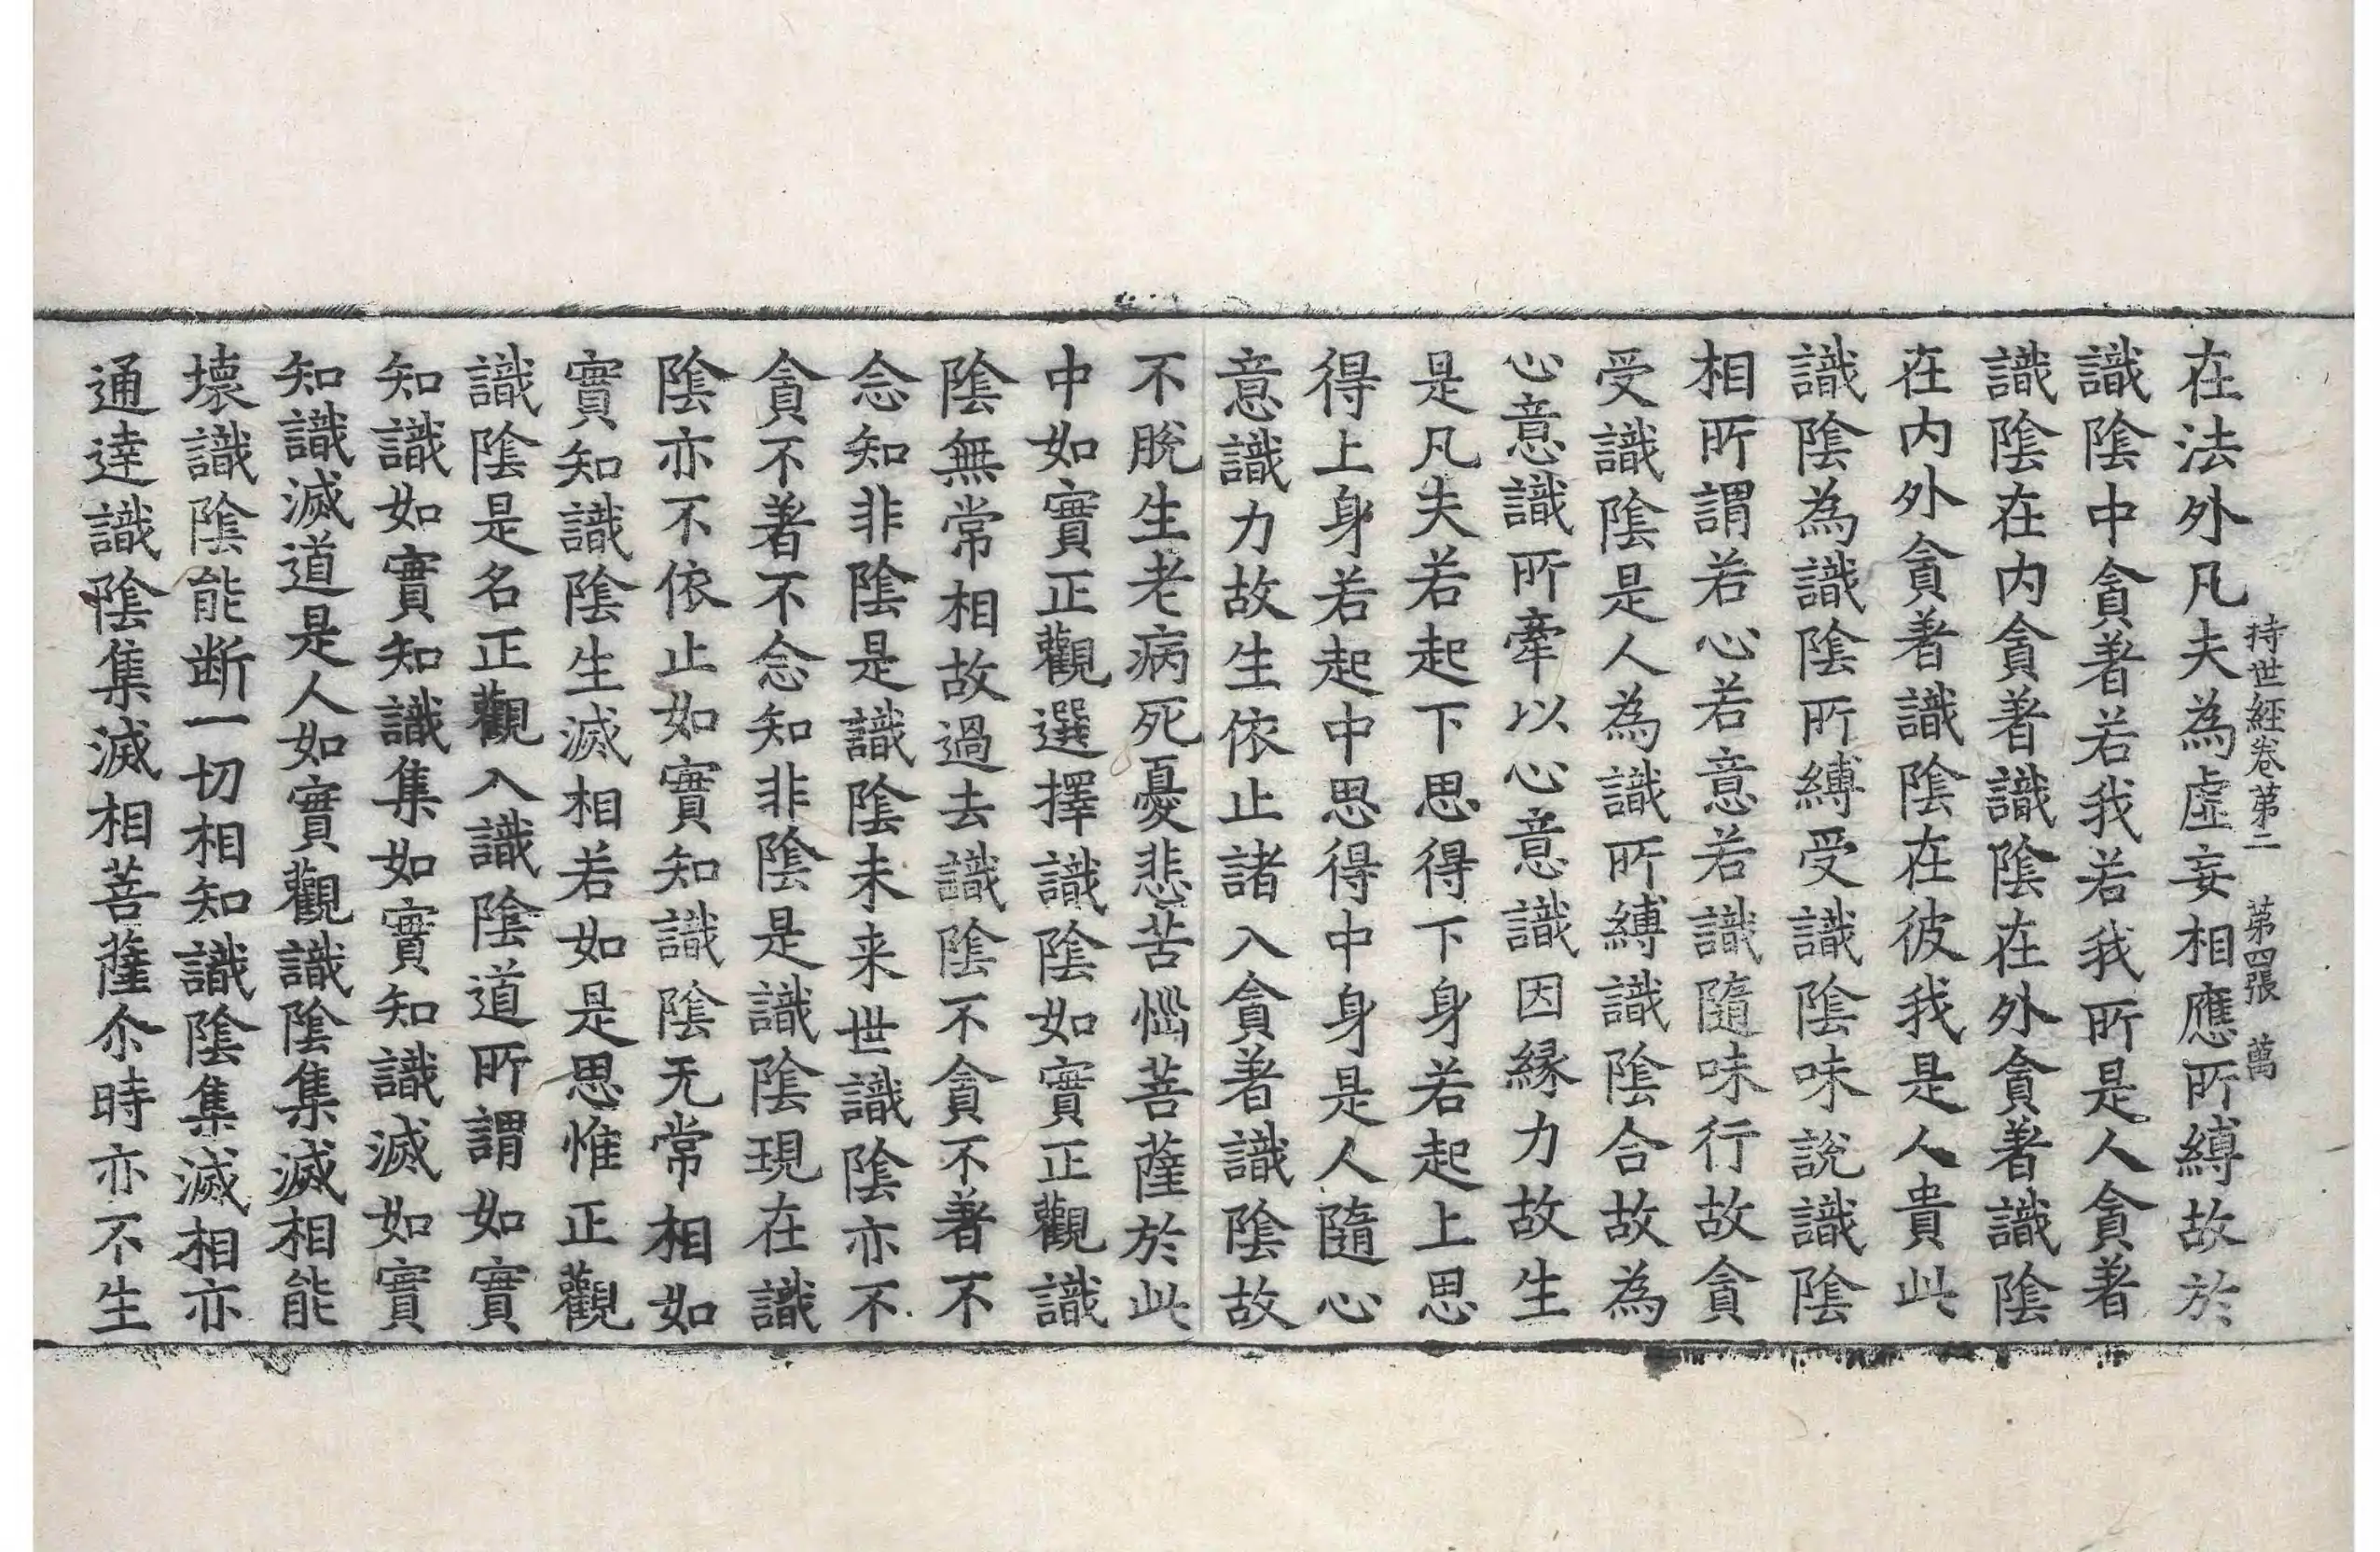 持世經卷第二 第四張 萬
在法外凡夫為虛妄相應所縛故於
識陰中貪著若我若我所是人貪著
識陰在内貪著識陰在外貪著識陰
在内外貪著識陰在彼我是人貴此
識陰為識陰所縛受識陰味說識陰
相所謂若心若意若識隨味行故貪
受識陰是人為識所縛識陰合故為
心意識所牽以心意識因縁力故生
是凡夫若起下思得下身若起上思
得上身若起中思得中身是人隨心
意識力故生依止諸入貪著識陰故
不脫生老病死憂悲苦惱菩薩於此
中如實正觀選擇識陰如實正觀識
陰無常相故過去識陰不貪不著不
念知非陰是識陰未来世識陰亦不
貪不著不念知非陰是識陰現在識
陰亦不依止如實知識陰无常相如
實知識陰生滅相若如是思惟正觀
識陰是名正觀入識陰道所謂如實
知識如實知識集如實知識滅如實
知識滅道是人如實觀識陰集滅相能
壞識陰能断一切相知識陰集滅相亦
通達識陰集滅相菩薩尒時亦不生